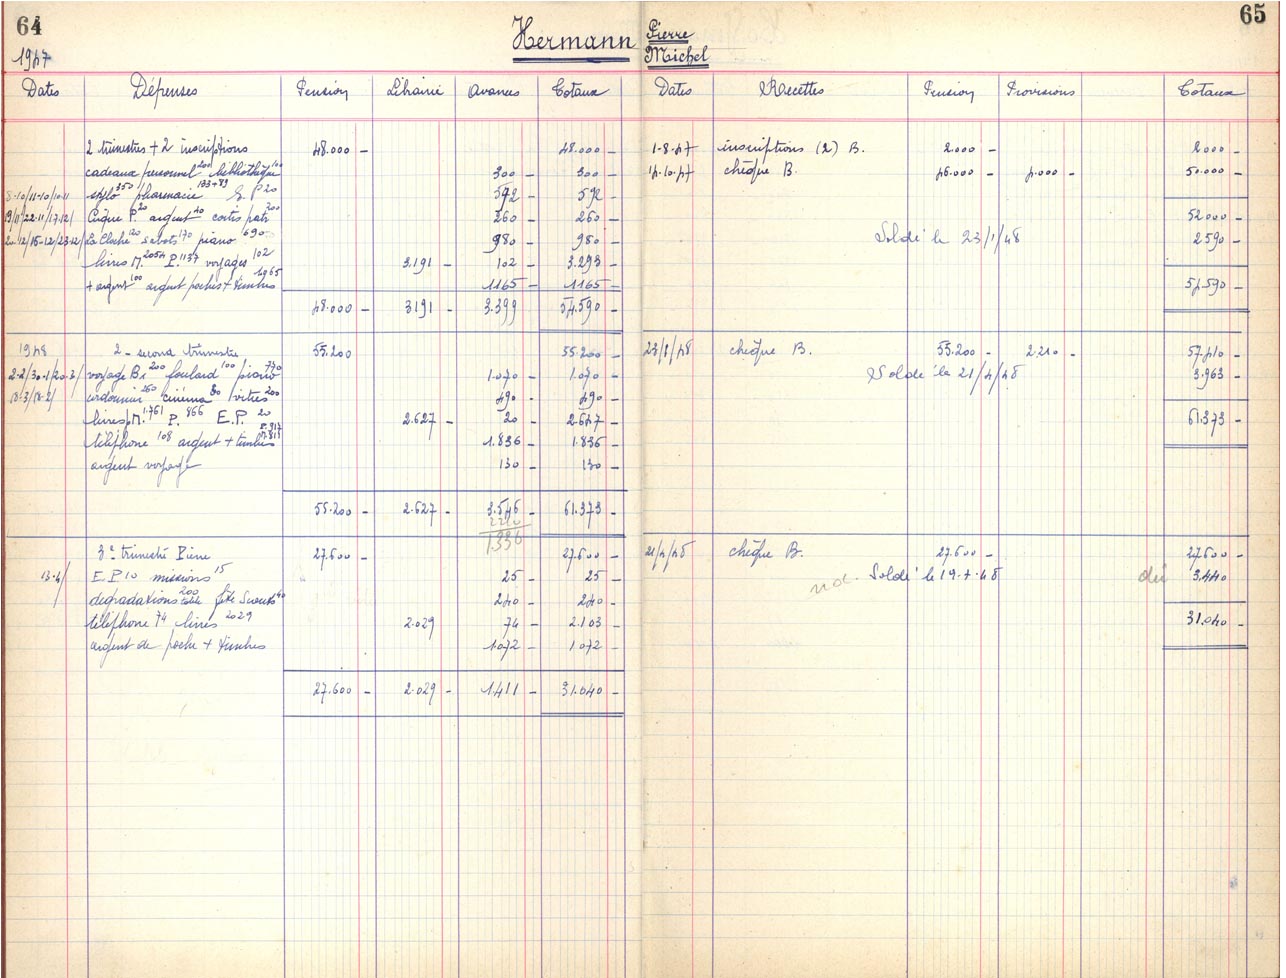 64
65
Hermann Pierre
Michel
1947
Dates Dépenses Pension Librairie Avances Totaux Dates Recettes Pension Provisions Totaux
2 trimestres + 2 inscriptions 48.000 - 48.000 - 1-8-47 inscriptions (2) B. 2.000 - 2000 -
cadeaux personnel 200 bibliothèque 100 300 - 300 - 4.10.47 chèque B. 46.000 - 4.000 - 50.000 -
8-10/11-10/10-11 stylo 350 pharmacie 133+89 E.P 20 592 592 -
19/11/22-11/17-12/ Cirque P. 20 argent 40 200 260 - 260 - 52000 -
20-12/15-12/23-12/ La Cloche 120 sabots 170 piano 690 980 - 980 - Soldé le 23/1/48 2590 -
livres M. 2054 P. 1137 voyages 102 3.191 - 102 - 3.293 -
+ argent 100 argent poches + timbres 1065 1165 - 1165 - 54.590 -
48.000 - 3191 - 3.399 - 54.590 -
1948 2 - second trimestre 55.200 55.200 - 23/1/48 chèque B. 55.200 - 2.210 - 57.410 -
2-2/30-1/20-3/ voyage Bx 200 foulard 100 piano 770 1.070 - 1.070 - Soldé le 21/4/48 3.963 -
18-3/18-2/ cordonnier 260 cinéma 30 vitres 200 490 - 490 -
livres M. 1.761 P. 866 E.P. 20 2.627 - 20 - 2.647 - 61.373 -
téléphone 108 argent + timbres 1.836 - 1.836 -
argent voyage 130 - 130 -
55.200 - 2.627 - 3.546 - 61.373 -
2210
1336
3e trimestre Pierre 27.600 - 27.600 - 21/4/48 chèque B. 27.600 - 27.600 -
13-4/ E.P 10 missions 15 25 - 25 - Soldé le 19-7-48 dû 3.440 -
dégradations 200 fête Scouts 40 240 - 240 -
téléphone 74 livres 2029 2.029 74 - 2.103 - 31.040 -
argent de poche + timbres 1072 - 1072 -
27.600 - 2.029 - 1411 - 31.040 -